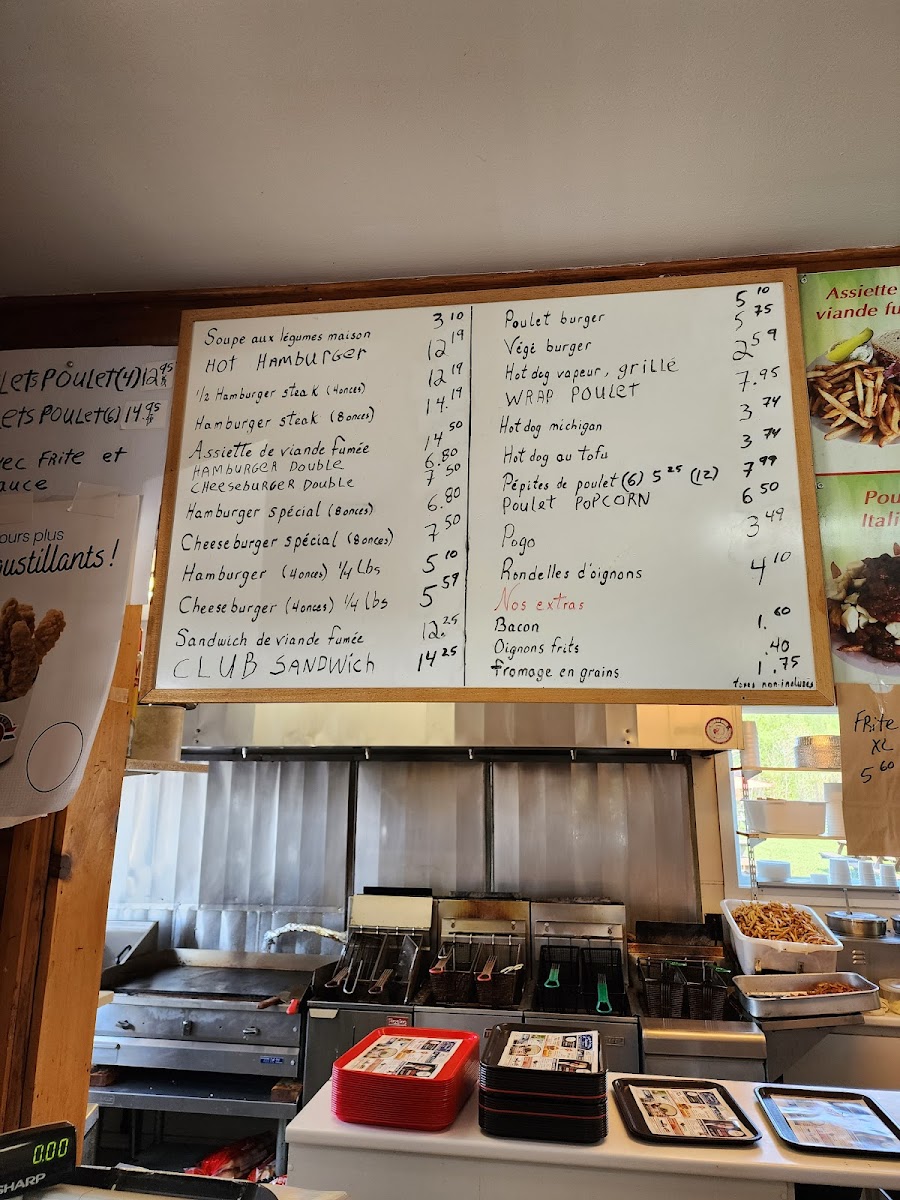 LETS POULET(4) 12.95
LETS POULET(6) 14.95
VEC FRITE et
AUCE
ours plus
oustillants !
Soupe aux légumes maison 3 10
HOT HAMBURGER 12 19
1/2 Hamburger steak (4 onces) 12 19
Hamburger steak (8 onces) 14. 19
Assiette de viande fumée 14 50
HAMBURGER DOUBLE 6.80
CHEESEBURGER DOUBLE 7 50
Hamburger spécial (8 onces) 6.80
Cheeseburger spécial (8 onces) 7 50
Hamburger (4 onces) 1/4 Lbs 5 10
Cheeseburger (4 onces) 1/4 Lbs 5 59
Sandwich de viande fumée 12. 25
CLUB SANDWICH 14 25
Poulet burger 5 10
Végé burger 5 75
Hot dog vapeur, grillé 2 59
WRAP POULET 7.95
Hot dog michigan 3 74
Hot dog au tofu 3 74
Pépites de poulet (6) 5 25 (12) 7 99
Poulet POPCORN 6 50
Pogo 3 49
Rondelles d'oignons 4 10
Nos extras
Bacon 1. 60
Oignons frits .40
fromage en grains 1.75
taxes non-incluses
Assiette
viande fu
Pou
Itali
FRite
XL
5 60
0.00
SHARP